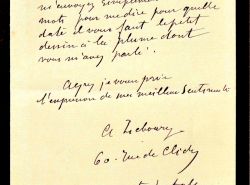 m'envoyez simplement
mots pour me dire pour quelle
date il vous faut le petit
dessin à la plume dont
vous m'avez parlé.
Agréez je vous prie
l'expression de mes meilleurs sentiments
60 rue de Clichy